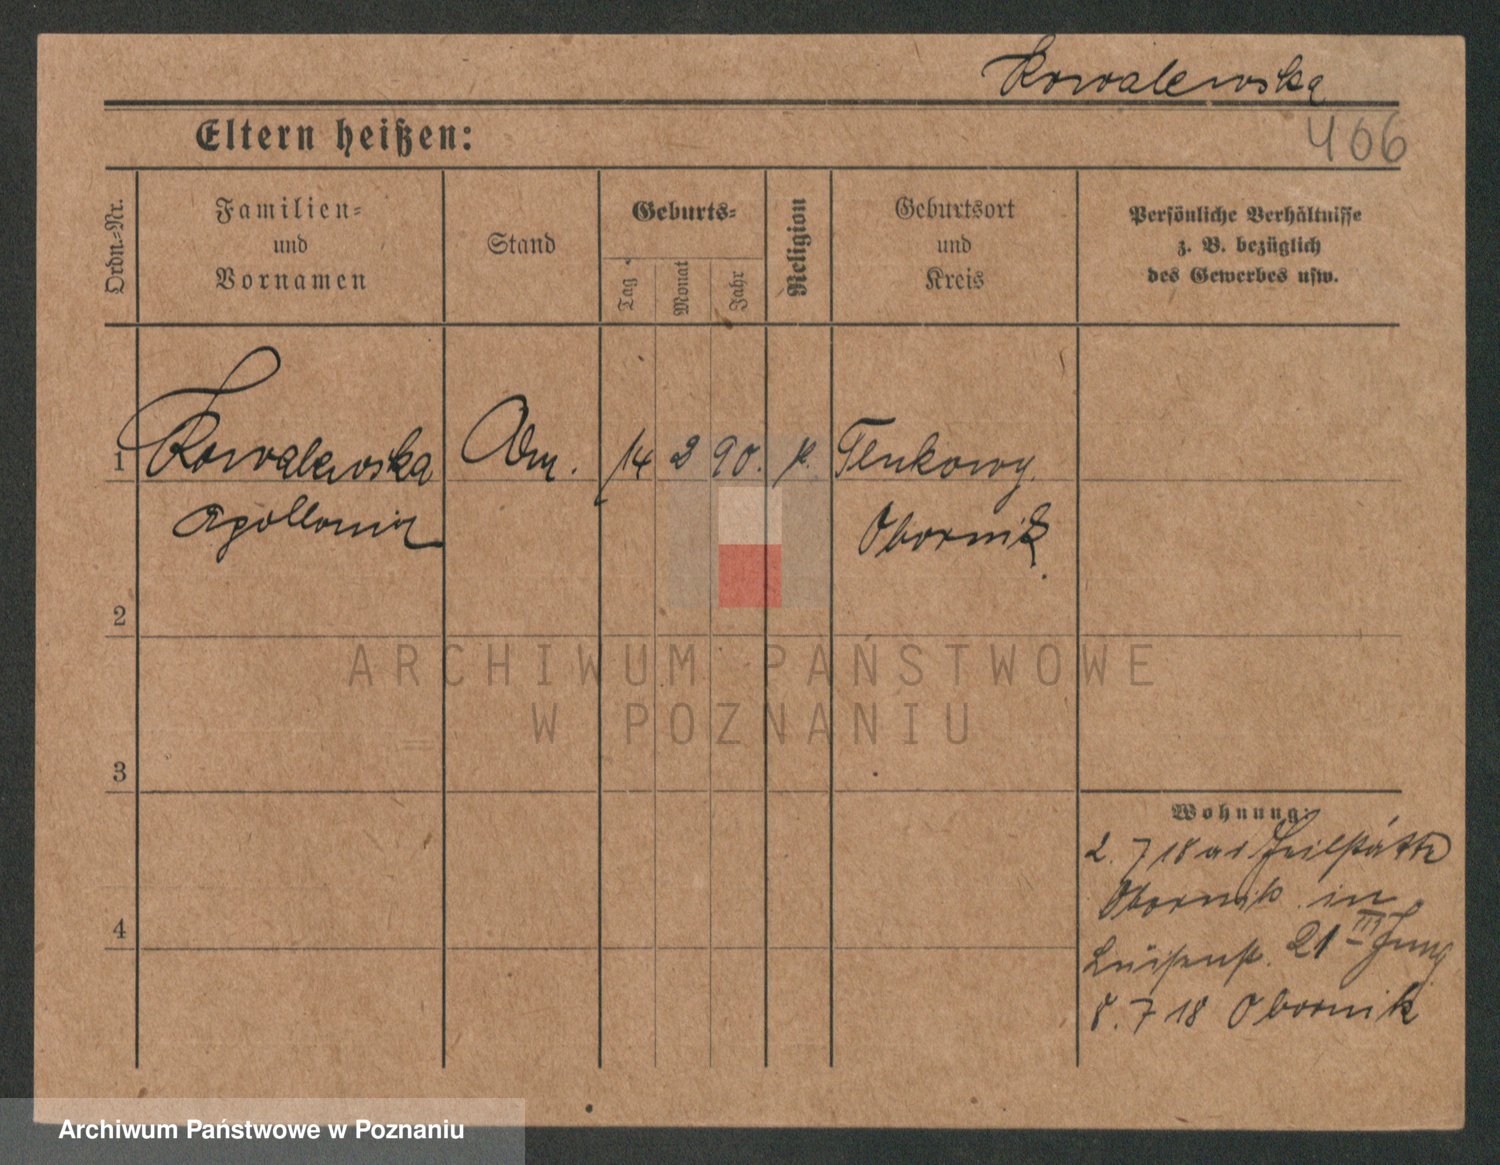 Kowalewska
466
Eltern heißen:
Ordn.-Nr.
Familien-
und
Vornamen
Stand
Geburts-
Tag
Monat
Jahr
Religion
Geburtsort
und
Kreis
Persönliche Verhältnisse
z. B. bezüglich
des Gewerbes usw.
1 Kowalewska 14 2 90. k.
Apollonia Obornik.
2
3
4
Wohnung:
2. 7 18 Heilstätte
Obornik in
Luisenst. 21 III
8. 7 18 Obornik
ARCHIWUM PAŃSTWOWE
W POZNANIU
Archiwum Państwowe w Poznaniu